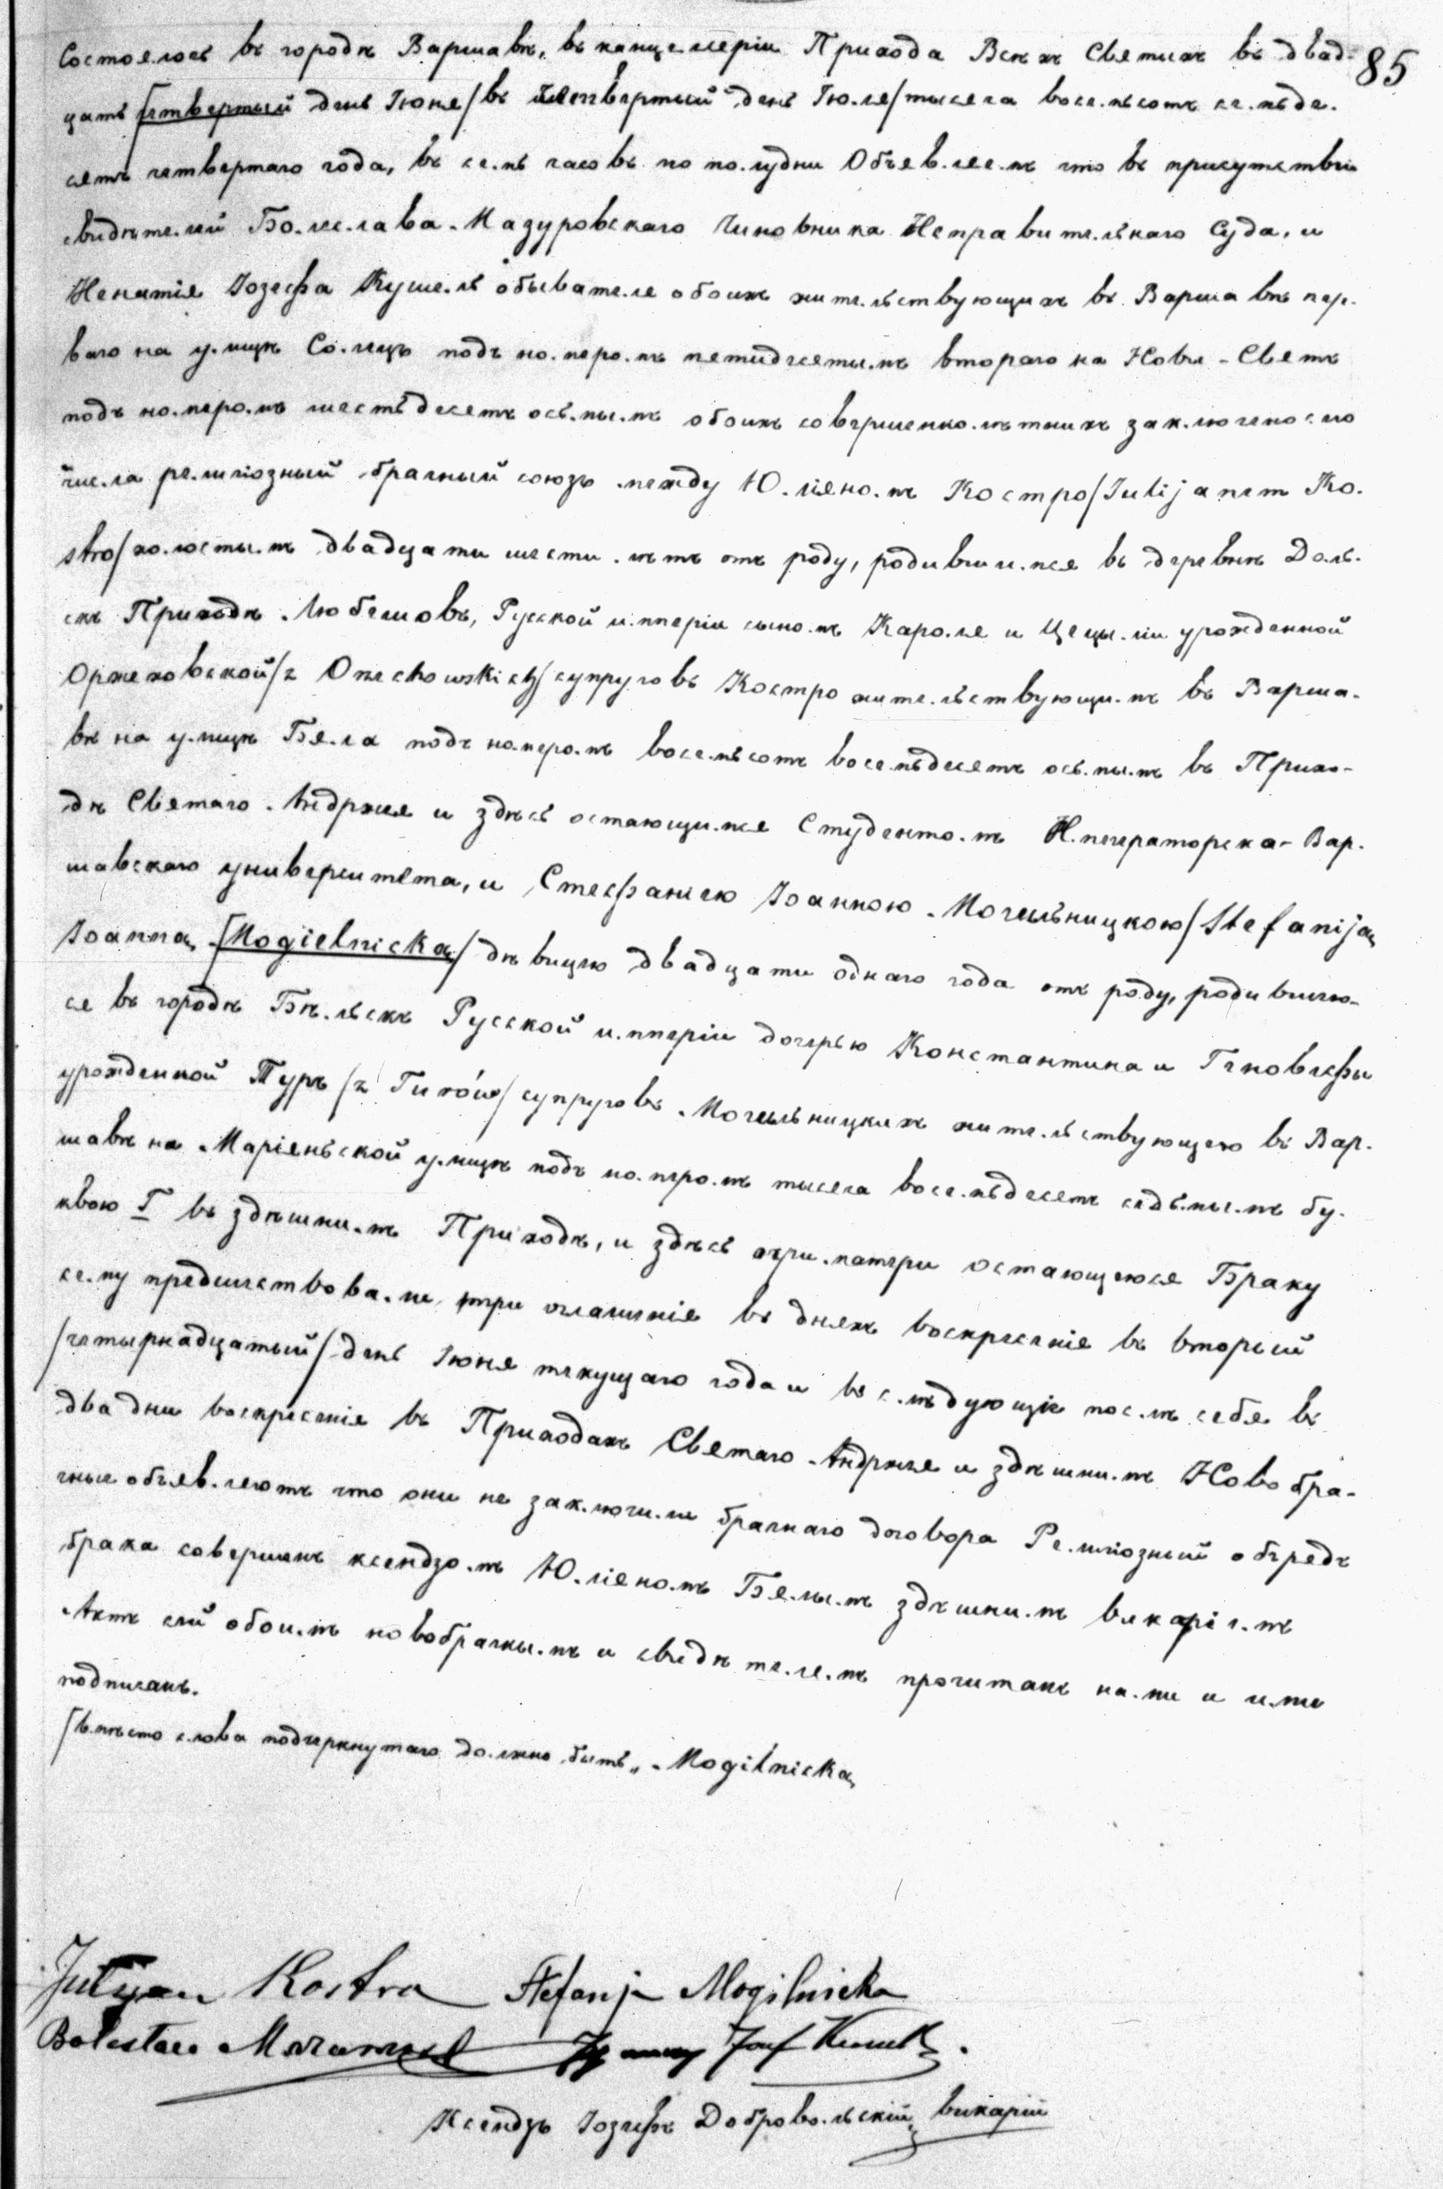 Состоялось въ городѣ Варшавѣ, въ канцелеріи Прихода Всѣхъ Святыхъ въ двад- 85
цать четвертый день Іюня/въ четвертый день Іюля/тысяча восемьсотъ семьде-
сятъ четвертаго года, въ семь часовъ по полудни Объявляемъ что въ присутствіи
свидѣтелей Болеслава Мазуровскаго Чиновника Исправительнаго Суда, и
Игнатія Іозефа Кушель обывателя обоихъ жительствующихъ въ Варшавѣ пер-
ваго на улицѣ Солецъ подъ номеромъ пятидесятымъ втораго на Новы-Святъ
подъ номеромъ шестьдесятъ осьмымъ обоихъ совершеннолѣтнихъ заключено сего
числа религіозный брачный союзъ между Юліяномъ Костро/Julijanem Ko-
stro/холостымъ двадцати шести лѣтъ отъ роду, родившимся въ деревнѣ Доль-
скъ Приходѣ Любешовъ, Русской имперіи сыномъ Кароля и Цецыліи урожденной
Оржеховской/z Orzechowskich/супруговъ Костро жительствующимъ въ Варша-
вѣ на улицѣ Бяла подъ номеромъ восемьсотъ восемьдесятъ осьмымъ въ Прихо-
дѣ Святаго Андржея и здѣсь остающимся Студентомъ Императорска-Вар-
шавскаго университета, и Стефаніею Іоанною Могильницкою/Stefaniją
Joanną [Mogielnicką/дѣвицею двадцати однаго года отъ роду, родившею-
ся въ городѣ Бѣльскѣ Русской имперіи дочерью Константина и Геновефы
урожденной Туръ/z Turów/супруговъ Могильницкихъ жительствующею въ Вар-
шавѣ на Маріяньской улицѣ подъ номеромъ тысяча восемьдесятъ седьмымъ бу-
квою Г въ здѣшнимъ Приходѣ, и здѣсь при матери остающеюся Браку
сему предшествовали три оглашенія въ дняхъ воскресенія въ вторый
/четырнадцатый/день Іюня текущаго года и въ слѣдующіе послѣ себя въ
два дни воскресенія въ Приходахъ Святаго Андржея и здѣшнимъ Новобра-
чные объявляютъ что они не заключили брачнаго договора Религіозный обрядъ
брака совершенъ ксендзомъ Юліяномъ Бялымъ здѣшнимъ викаріемъ
Актъ сей обоимъ новобрачнымъ и свидѣтелямъ прочитанъ нами и ими
подписанъ.
[вмѣсто слова подчеркнутаго должно быть „Mogilnicką
Julijan Kostro Stefanja Mogilnicka
Bolesław Józef
Ксендзъ Іозефъ Добровольскій викарій